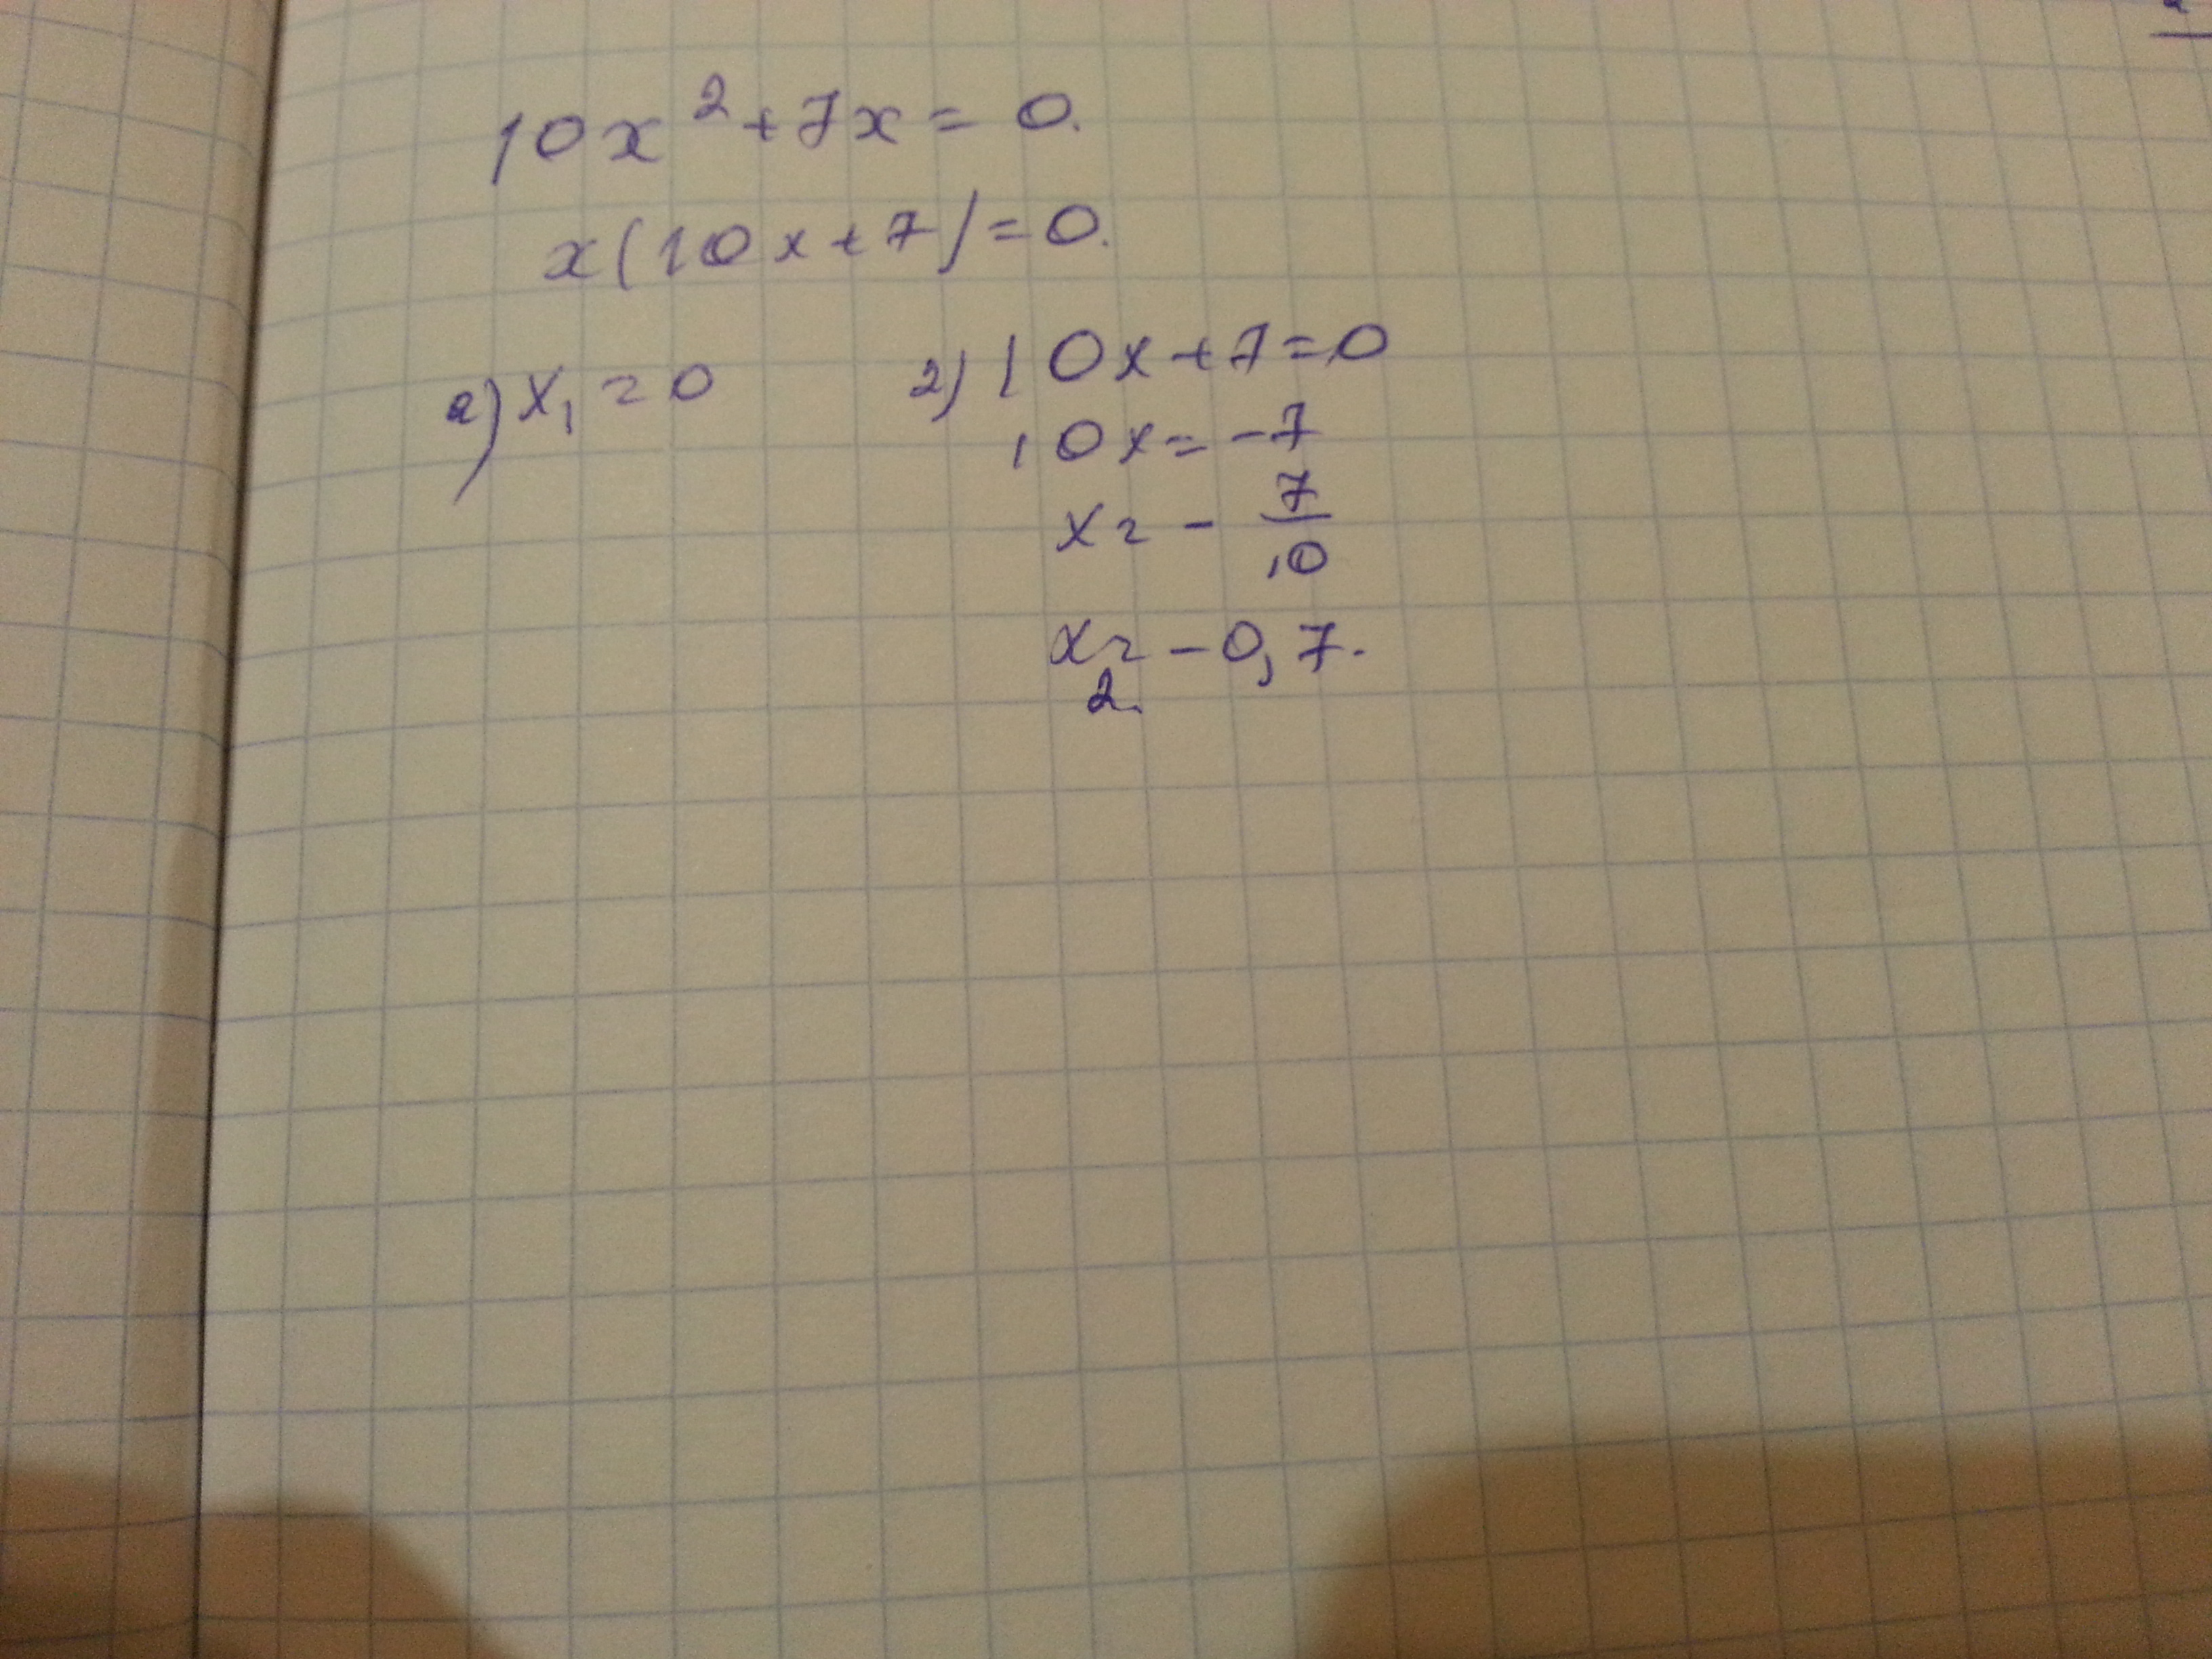 10x² + 7x = 0.
x(10x + 7) = 0.
a) x₁ = 0
2) 10x + 7 = 0
10x = -7
x = - 7/10
x₂ = -0,7.